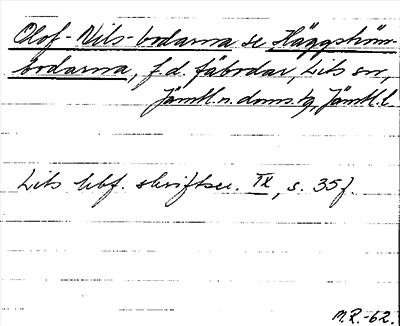 Olof-Nils-bodarna se Häggström-
bodarna, f.d. fäbodar, Lits sn,
Jämtl. n. doms. tg, Jämtl. l.
Lits hbf. skriftser. IX, s. 35f.
M.R.-62.